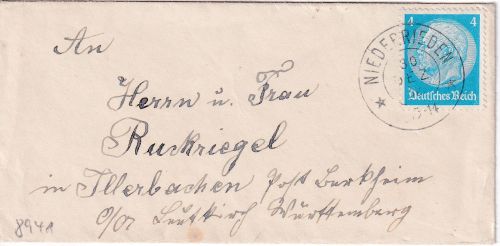 An
Herrn u. Frau
Ruckriegel
in Illerbachen Post Berkheim
O/A Leutkirch Württemberg
8941
NIEDERRIEDEN
30
DEZ
-14
4 4
Deutsches Reich